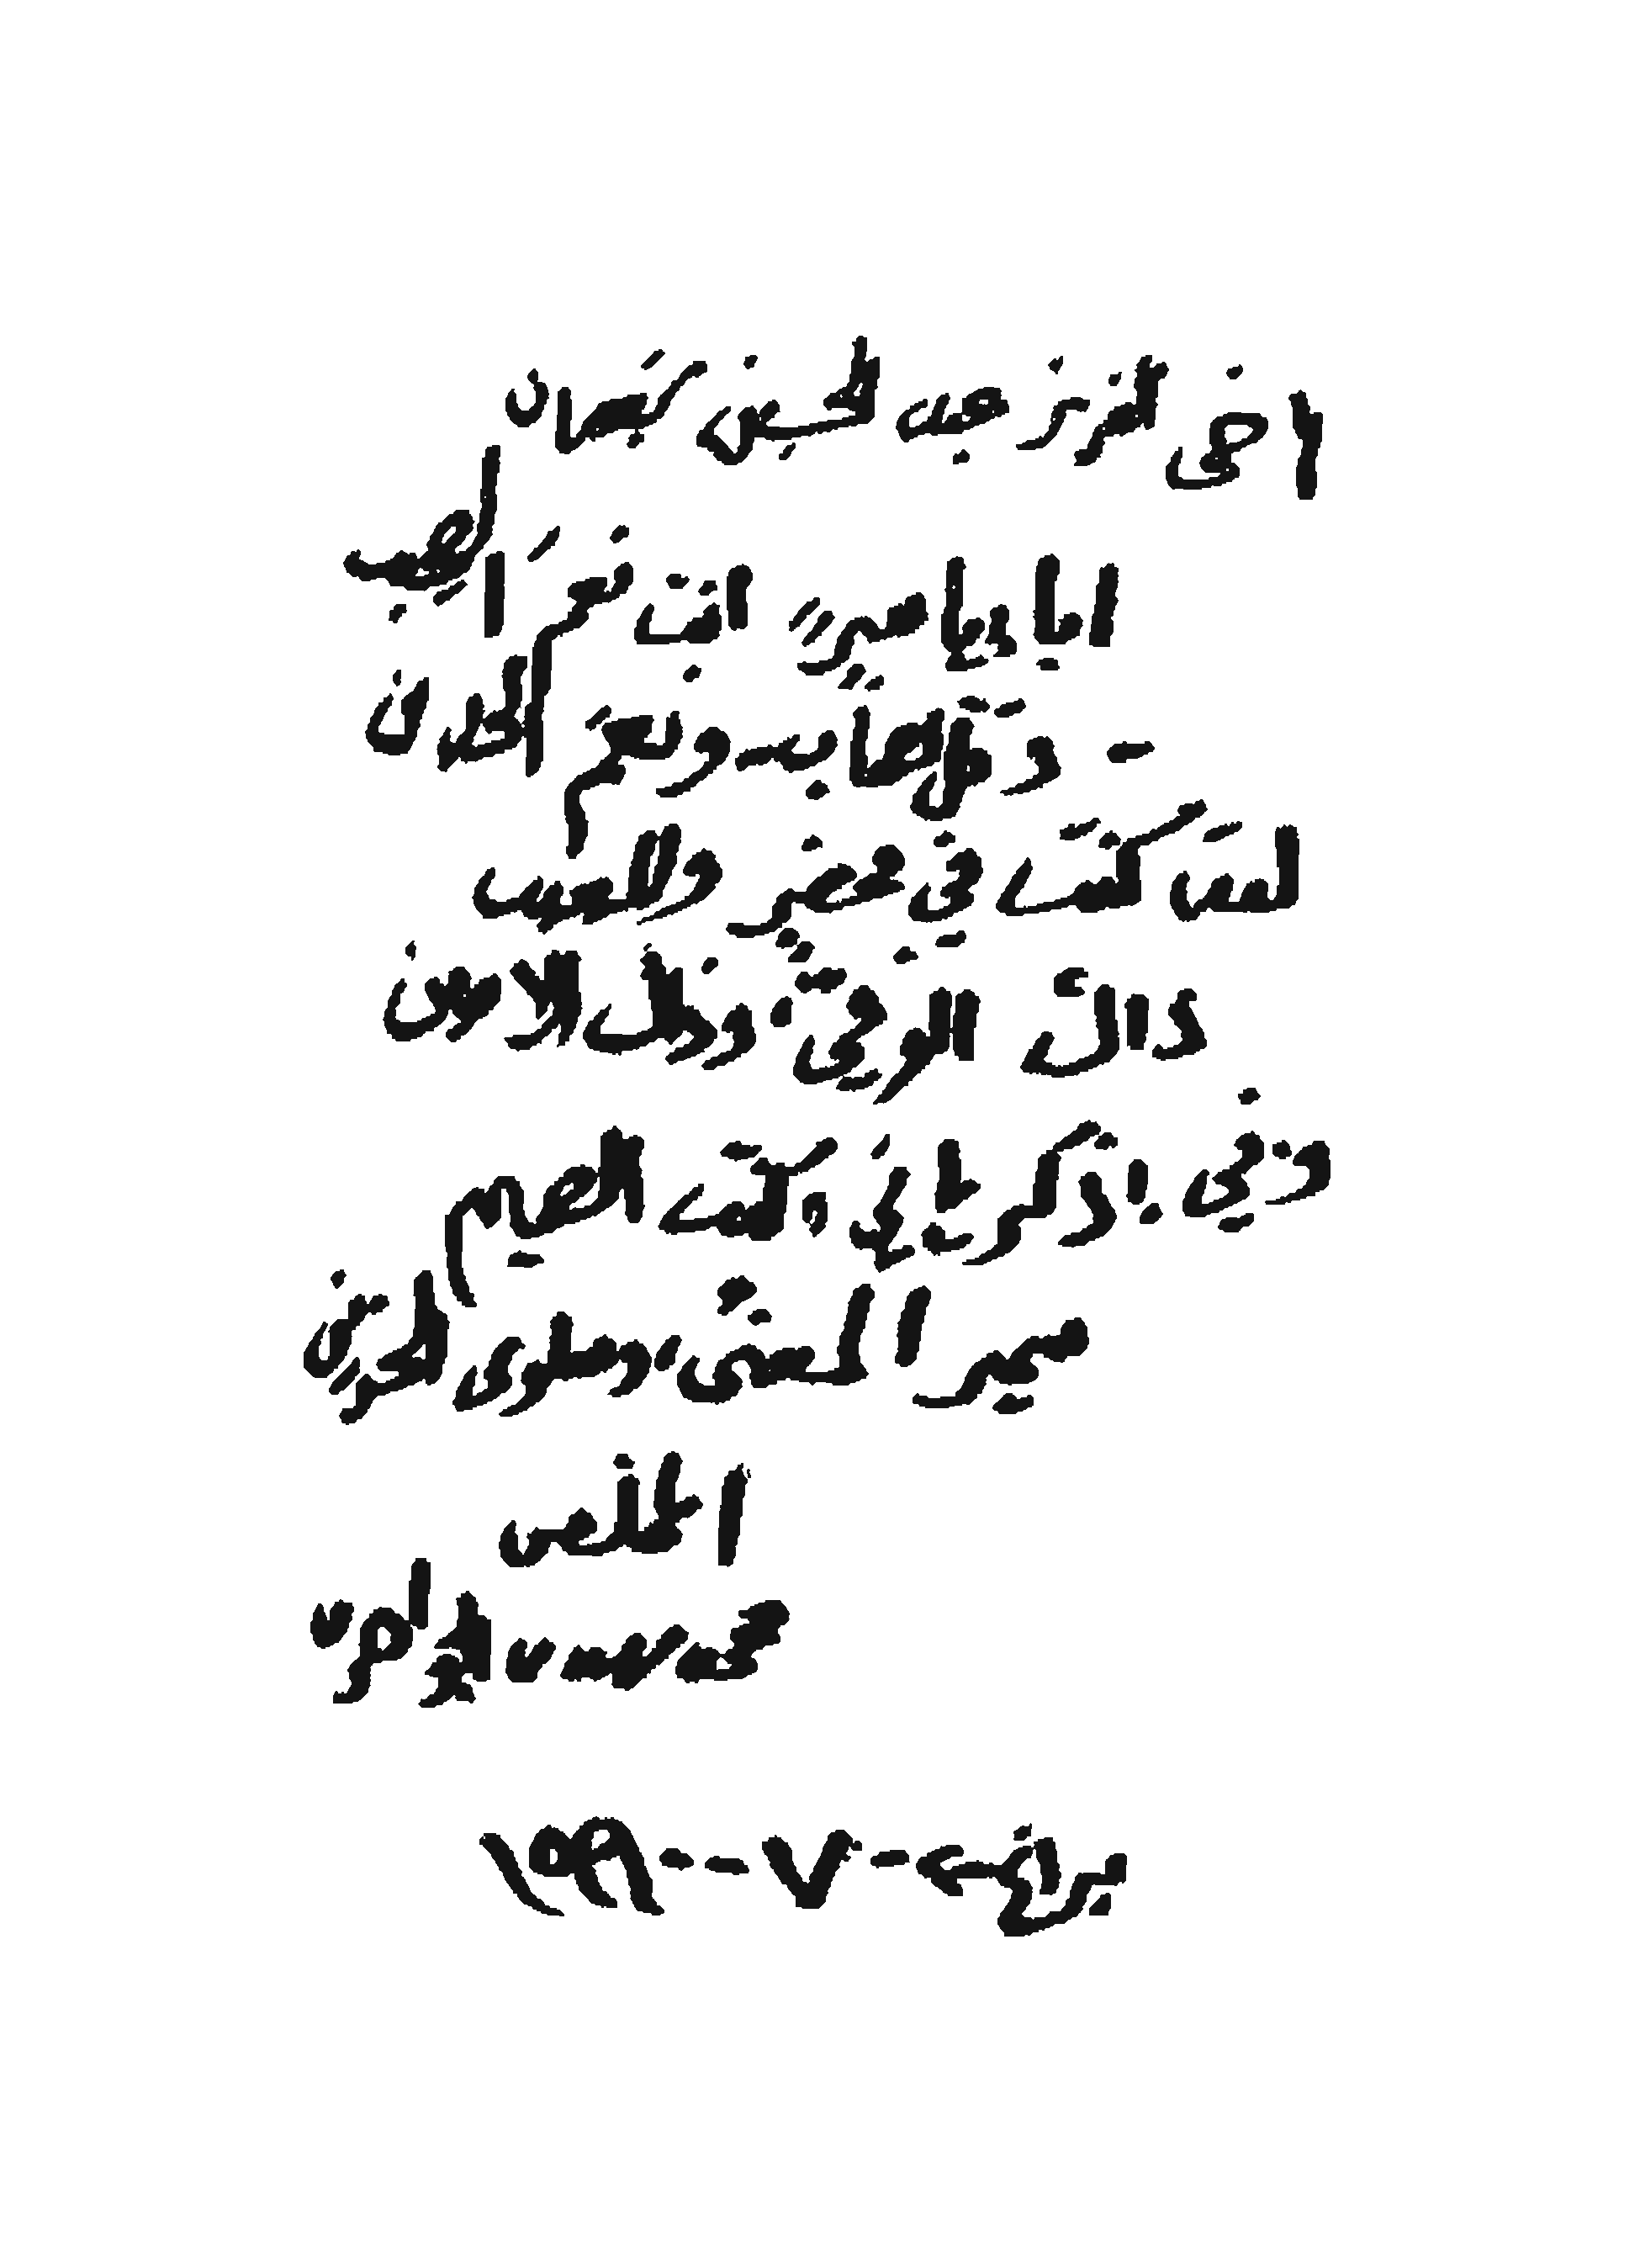 اخي العزيز عبد الحسين شعبان
ابا ياسرٍ انت نعمَ الصاحب
- وقلّ صاحبٌ ونعم الخدن
لقد كنتَ في محضرٍ والمغيب
ذاكَ الوفيّ، وذاك الأمين
وفي ذكرياتي، كنتَ الصميم
سمير المعنّى، وسلوى الحزين
المخلص
محمد مهدي الجواهري
براغ - ٧ - ١٩٩٠